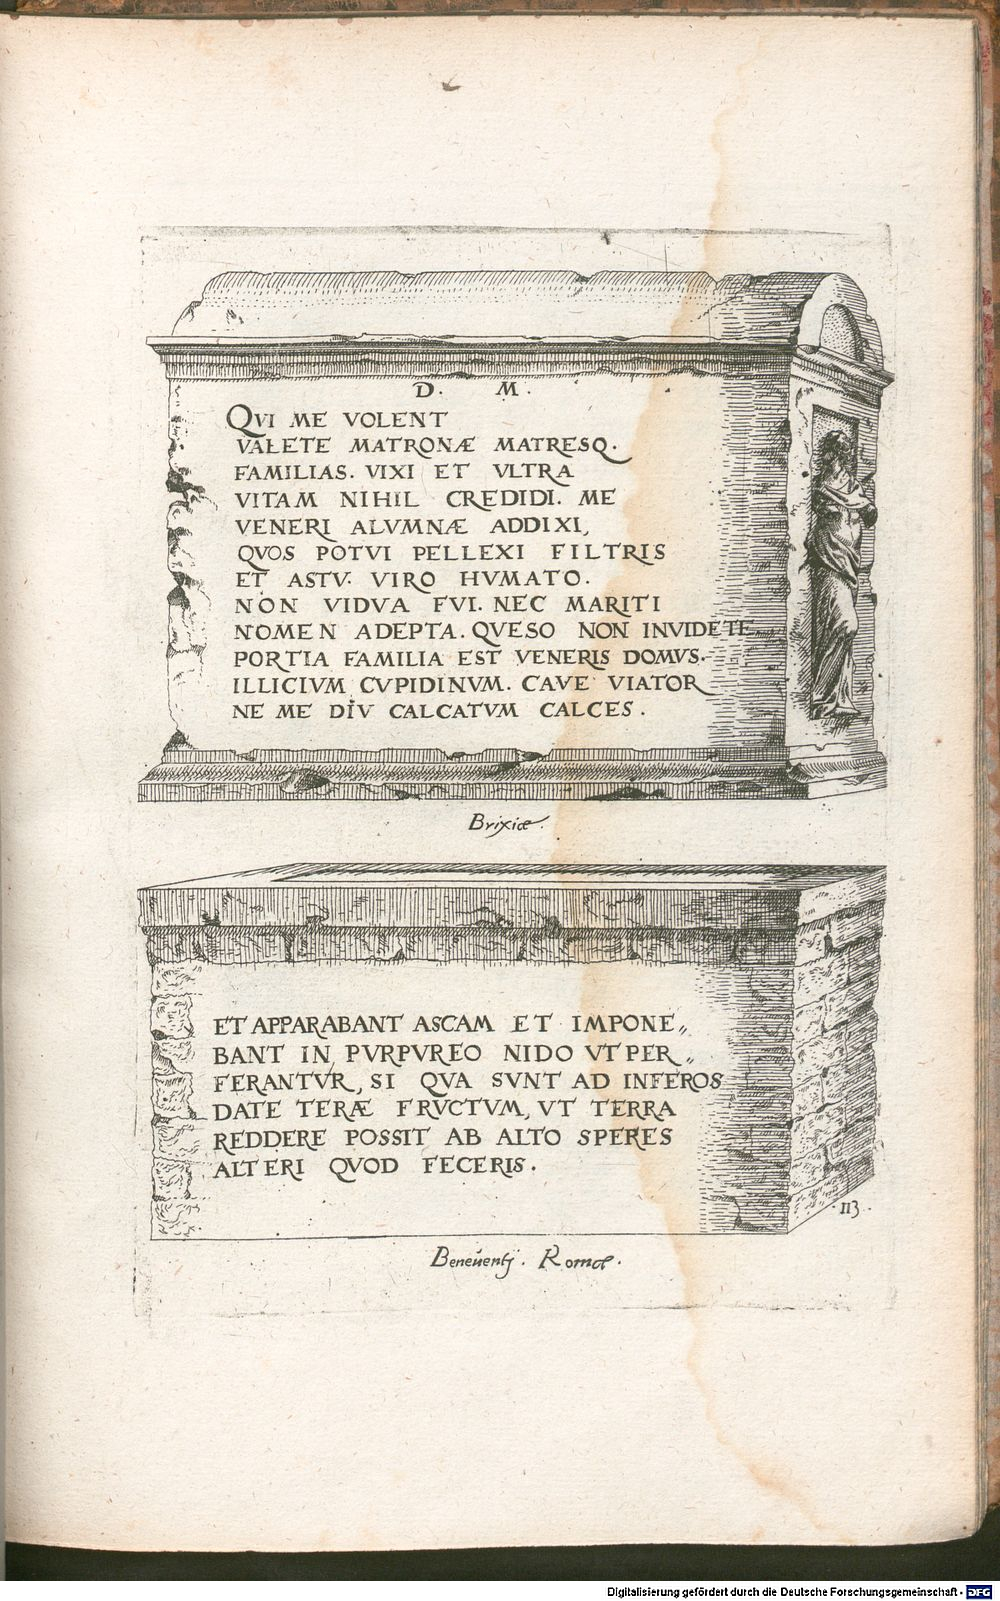 D. M.
QVI ME VOLENT
VALETE MATRONÆ MATRESQ.
FAMILIAS. VIXI ET VLTRA
VITAM NIHIL CREDIDI. ME
VENERI ALVMNÆ ADDIXI,
QVOS POTVI PELLEXI FILTRIS
ET ASTV. VIRO HVMATO.
NON VIDVA FVI. NEC MARITI
NOMEN ADEPTA. QVESO NON INVIDETE
PORTIA FAMILIA EST VENERIS DOMVS.
ILLICIVM CVPIDINVM. CAVE VIATOR
NE ME DIV CALCATVM CALCES.
Brixiæ.
ET APPARABANT ASCAM ET IMPONE„
BANT IN PVRPVREO NIDO VT PER„
FERANTVR, SI QVA SVNT AD INFEROS
DATE TERÆ FRVCTVM, VT TERRA
REDDERE POSSIT AB ALTO SPERES
ALTERI QVOD FECERIS.
·113·
Beneventj. Romæ.
Digitalisierung gefördert durch die Deutsche Forschungsgemeinschaft - DFG